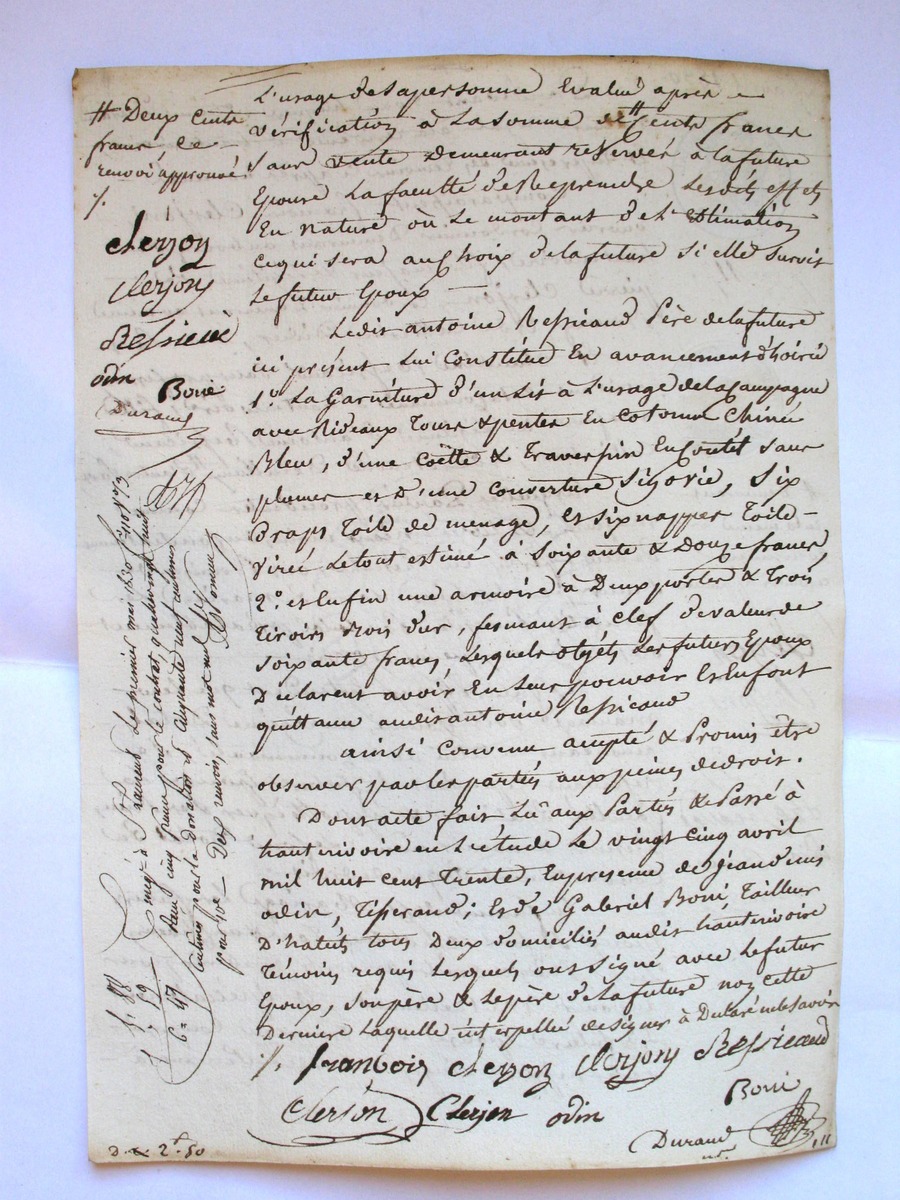 L'usage de sa personne Evalué après
vérification à La somme de # Cents francs
sans vente demeurant réservée à la future
Epouse La faculté de Reprendre Lesdits effets
En nature où Le montant de L'Estimation
ce qui sera au Choix de la future si elle survit
Le futur Epoux —
Ledit antoine Ressicaud Père de la future
ici présent Lui Constitue En avancement d'hoirie
1.° La Garniture d'un Lit à L'usage de la Campagne
avec Rideaux Tours & pentes En Cotonne Chinée
Bleu, d'une Coëtte & Traverspin En Coutil sans
plumes et D'une Couverture, Six
Draps Toile de menage, et six nappes Toile —
virée Le tout estimé à Soixante & Douze francs
2.° et Enfin une armoire à Deux portes & Trois
Tiroirs Bois dur, fermant à Clef de valeur de
soixante francs, Lesquels objéts Les futurs Epoux
Déclarent avoir En Leur pouvoir Et En font
quittance audit antoine Ressicaud
ainsi Convenu accepté & Promis être
observer par Les parties aux peines de droit.
Dont acte fait Lû aux Parties & Passé à
hauterivoire en L'étude Le vingt Cinq avril
mil huit Cent Trente, En presence de Jean denis
odin, Tisserand; Et de Gabriel Boni Tailleur
D'habits tous Deux domiciliés audit hauterivoire
Témoins requis Lesquels ont Signé avec Le futur
Epoux, son père & Le père de La future non Cette
Derniere Laquelle interpellée de signer à Declaré ne le Savoir
/. françois Clerjon Clerjon Ressicaud
Clerjon Clerjon odin Boni
Durand
# Deux Cents
francs Ce
renvoi approuvé
/.
Clerjon
Clerjon
Ressicaud
odin Boni
Durand
Enregt. à St Laurent Le premier mai 1830 f.° 110 C. 73
Reçu cinq francs pour le contrat,
centimes pour la donation et Cinquante neuf centimes
pour 10e — Deux renvois, sans mot nul
f. 5. 88
. 59
6 = 47
D. x. 2f. 50